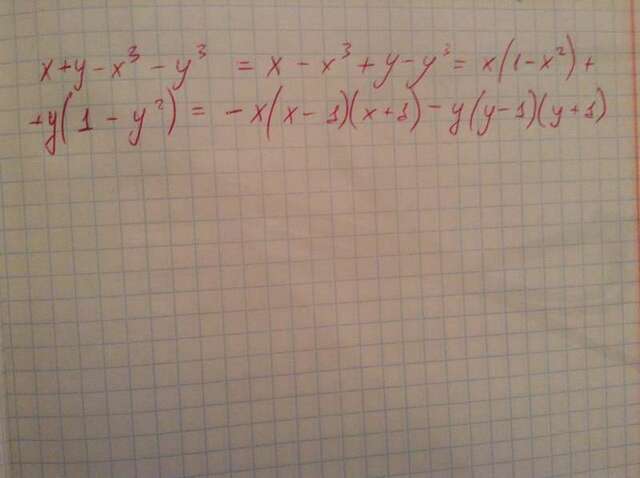 x+y-x³-y³ = x-x³+y-y³ = x(1-x²)+
+y(1-y²) = -x(x-1)(x+1)-y(y-1)(y+1)